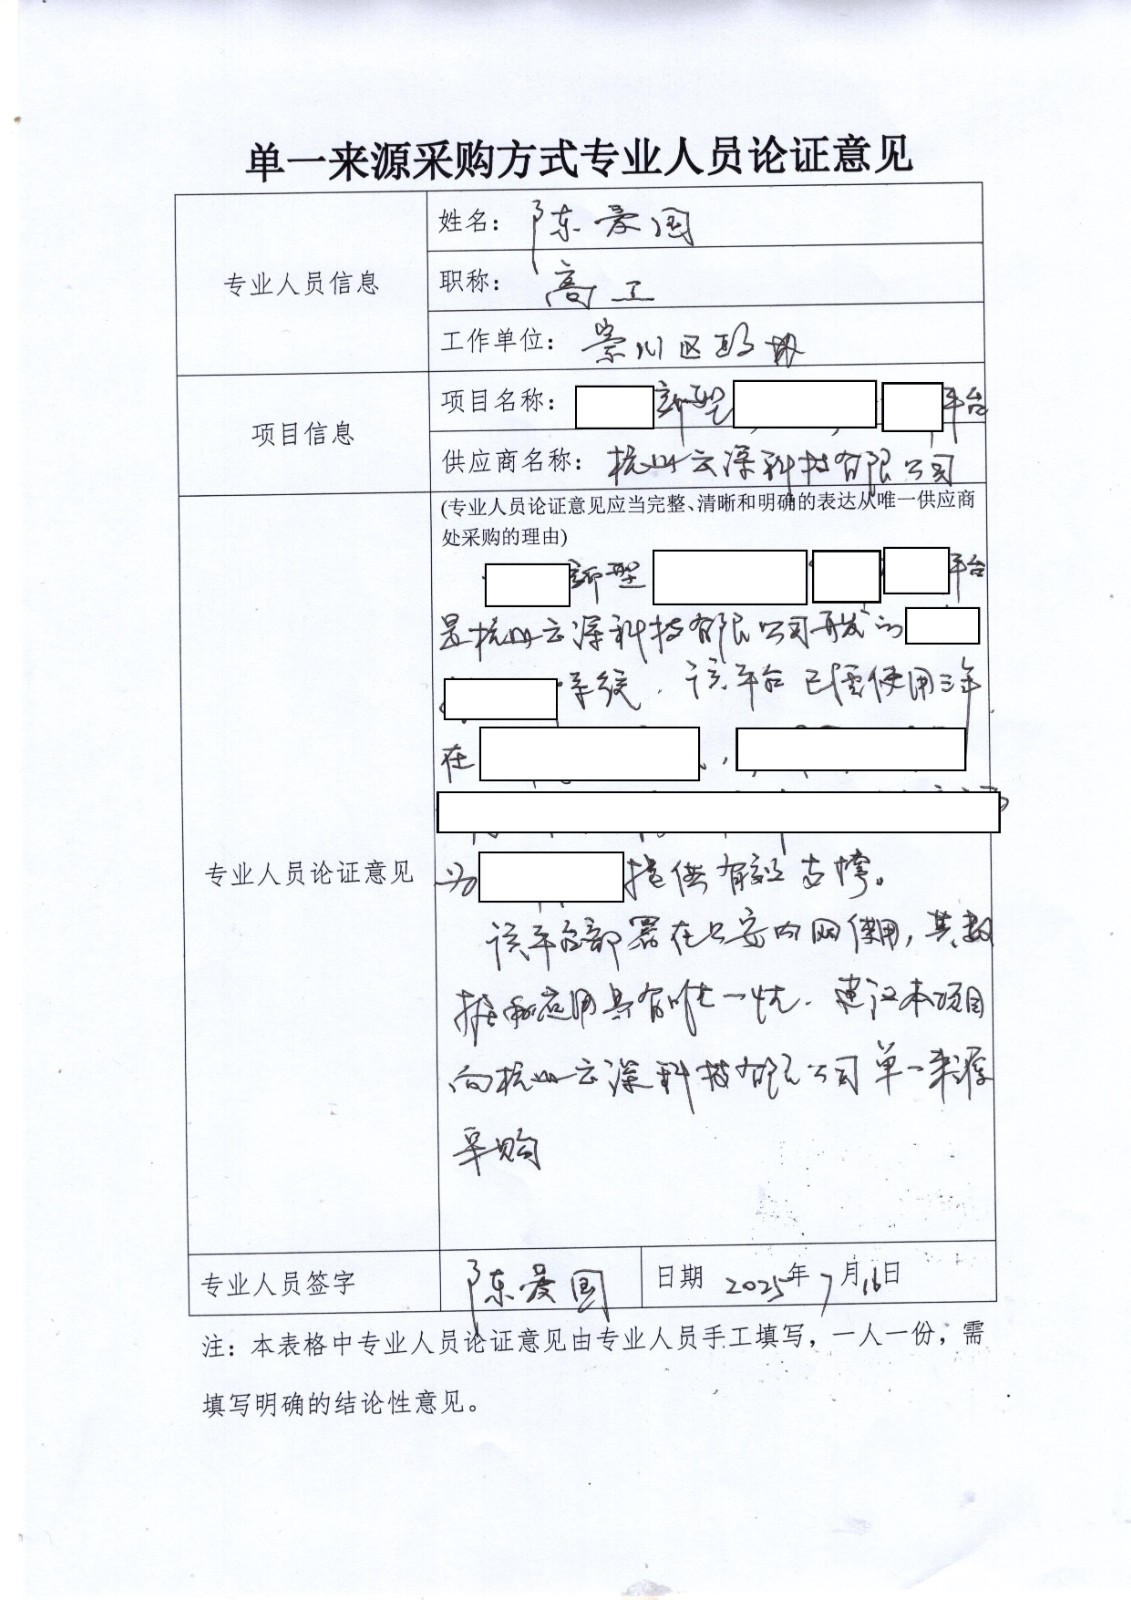 单一来源采购方式专业人员论证意见
专业人员信息
姓名：陈爱国
职称：高工
工作单位：崇川区政协
项目信息
项目名称：新型 平台
供应商名称：杭州云深科技有限公司
(专业人员论证意见应当完整、清晰和明确的表达从唯一供应商
处采购的理由)
专业人员论证意见
新型 平台
是杭州云深科技有限公司开发的
系统．该平台已经使用三年
在
为 提供有效支撑。
该平台部署在公安内网使用，其数
据和应用具有唯一性．建议本项目
向杭州云深科技有限公司单一来源
采购
专业人员签字
陈爱国
日期 2025年7月16日
注：本表格中专业人员论证意见由专业人员手工填写，一人一份，需
填写明确的结论性意见。